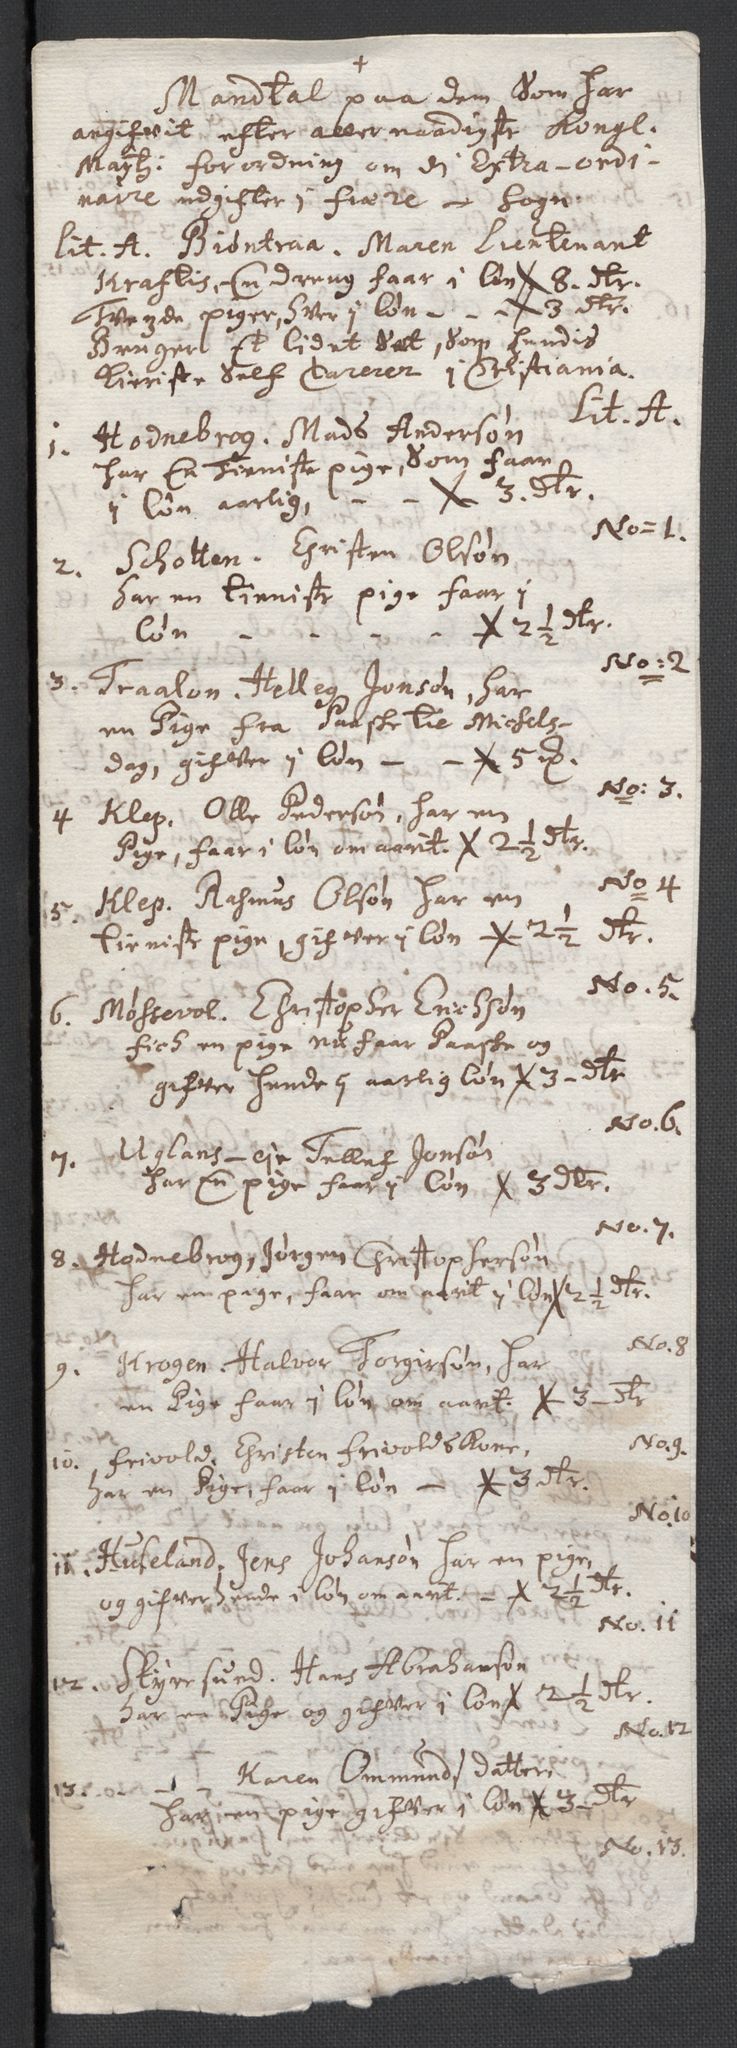 +
Mandtal paa dem Som har
angifvit efter allernaadigste Kongl.
Maytz: forordning om di Extra-ordi-
naire udgifter i fiære - Sogn
Lit. A. Biøntraa. Maren Lieutenant
Kraftis, En dreng faar i løn X 8. dlr.
Tvende piger, hver i løn - - X 3 dlr.
Bruger Et lidet Sæt, Som hendis
Lieriste Self Carerer i Christiania.
Lit. A.
1. Hodnebrog. Mads Andersøn
har En tieniste pige, Som faar
i løn aarlig, - - X 3. dlr.
No=1.
2. Schotten. Christen Olsøn
har en tieniste pige faar i
løn - - - - X 2½ dlr.
No:2
3. Traalon. Helleg Jonsøn, har
en Pige fra Paaske til Michels-
dag, gifver i løn - - X 5
No: 3.
4 Klep. Olle Pedersøn, har en
Pige, faar i løn om aarit. X 2½ dlr.
No 4
5. Klep. Rasmus Olsøn har en
tieniste pige, gifver i løn X 2½ dlr.
No. 5.
6. Møssevol. Christopher Erichsøn
fich en pige nu faar Paaske og
gifver hende i aarlig løn X 3 - dlr
No. 6.
7. Uglans-eje Tellef Jonsøn
har En pige faar i løn X 3 dlr.
No. 7.
8. Hodnebrog, Jørgen Christophersøn
har en page, faar om aarit i løn X 2½ dlr.
No. 8
9. Krogen. Halvor Torgirsøn, har
en Pige faar i løn om aarit. X 3 - dlr
No. 9.
10. frivold. Christen frivolds Kone,
har en Pige, faar i løn - X 3 dlr.
No. 10
11. Huseland. Jens Johansøn har en pige,
og gifver hende i løn om aarit. - X 2½ dlr.
No. 11
12. Skyresund. Hans Abrahamsøn
har en Pige og gifver i løn X 2½ dlr.
No. 12
13. - - - Karen Ommunds datter
har en pige gifver i løn X 3 - dlr
No. 13.